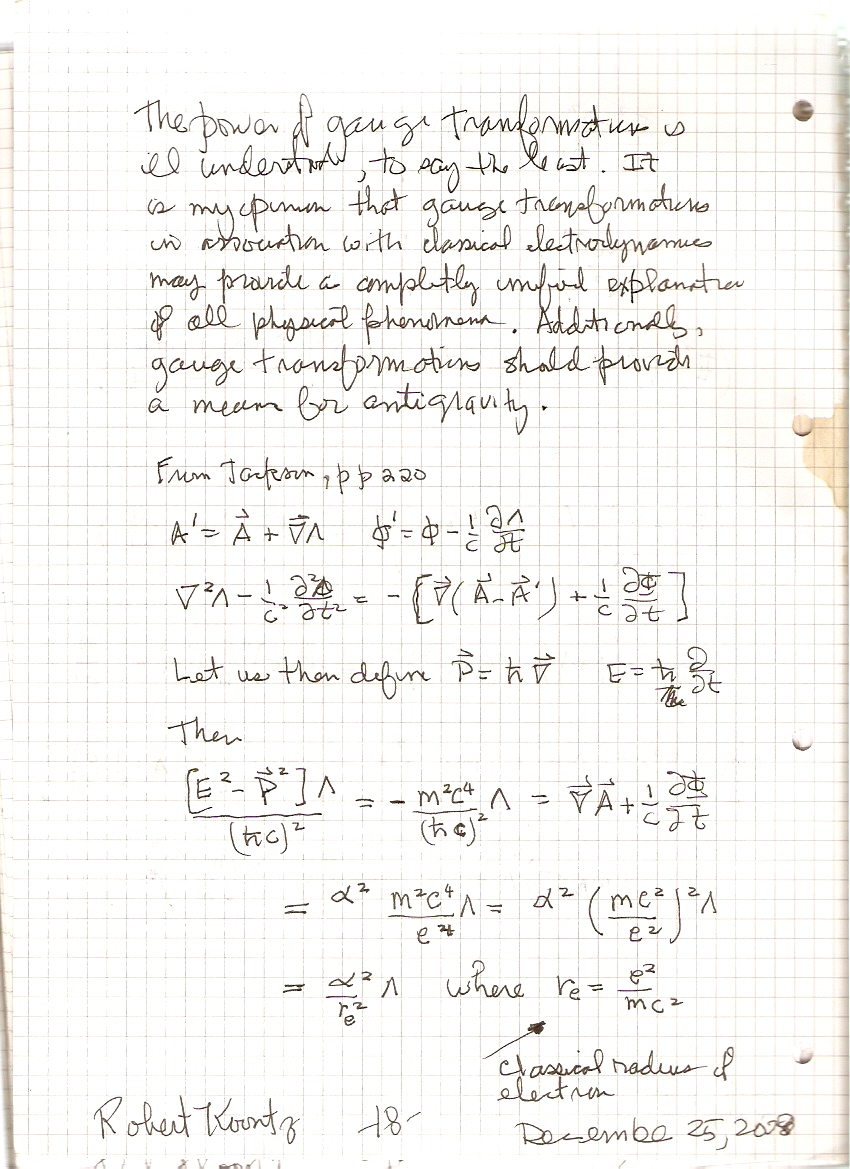 The power of gauge transformation is
ill understood, to say the least. It
is my opinion that gauge transformations
in association with classical electrodynamics
may provide a completly unified explanation
of all physical phenomena. Additionally,
gauge transformations should provide
a means for antigravity.
From Jackson, pp 220
A' = A⃗ + ∇⃗Λ   ϕ' = ϕ - 1/c ∂Λ/∂t
∇²Λ - 1/c² ∂²Φ/∂t² = - [∇⃗(A⃗ - A⃗') + 1/c ∂Φ/∂t]
Let us then define P⃗ = ħ∇⃗   E = ħ ∂/∂t
Then
[E² - P⃗²]Λ/(ħc)² = - m²c⁴/(ħc)² Λ = ∇⃗A⃗ + 1/c ∂Φ/∂t
= α² m²c⁴/e⁴ Λ = α² (mc²/e²)² Λ
= α²/rₑ² Λ where rₑ = e²/mc²
classical radius of
electron
Robert Koontz -18- December 25, 2008